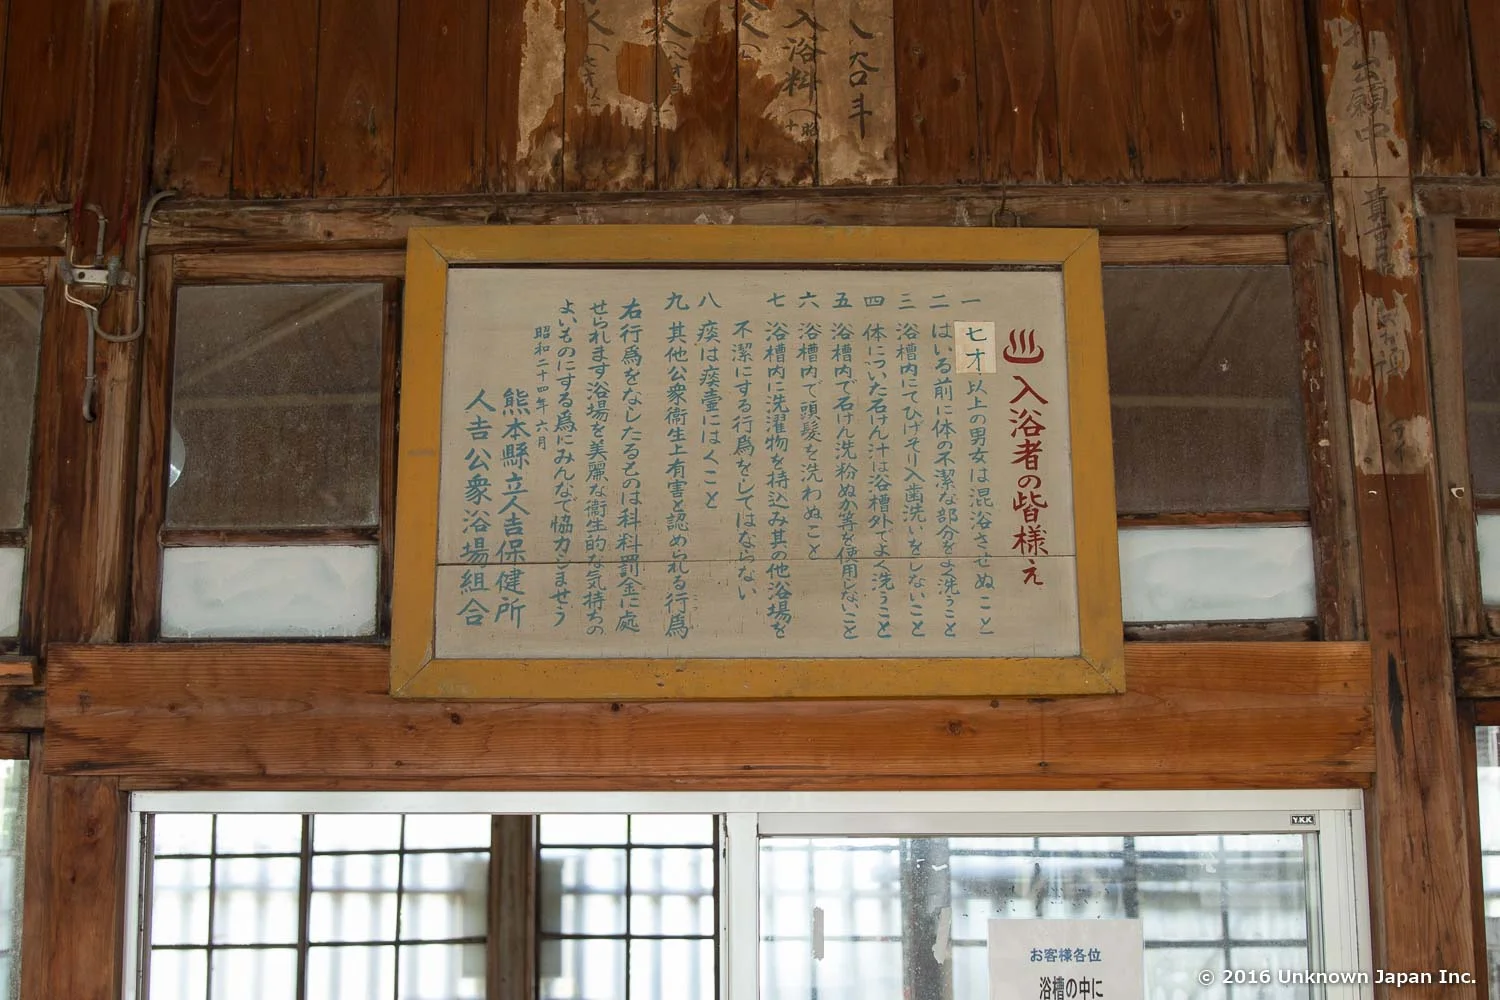 ♨入浴者の皆様え
一 七才以上の男女は混浴させぬこと
二 はいる前に体の不潔な部分をよく洗うこと
三 浴槽内にてひげそり入歯洗いをしないこと
四 体についた石けん汁は浴槽外でよく洗うこと
五 浴槽内で石けん洗粉ぬか等を使用しないこと
六 浴槽内で頭髪を洗わぬこと
七 浴槽内に洗濯物を持込み其の他浴場を
不潔にする行爲をしてはならない
八 痰は痰壷にはくこと
九 其他公衆衞生上有害と認められる行爲
右行爲をなしたるものは科料罰金に處
せられます浴場を美麗な衞生的な気持ちの
よいものにする爲にみんなで協力しませう
昭和二十四年六月
熊本縣立人吉保健所
人吉公衆浴場組合
入浴料
出願中
お客様各位
浴槽の中に
YKK
© 2016 Unknown Japan Inc.